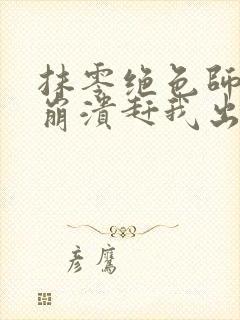 抹零绝色师
崩溃赶我出
彦鹰